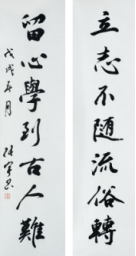 立志不隨流俗轉
留心學到古人難
戊戌年月